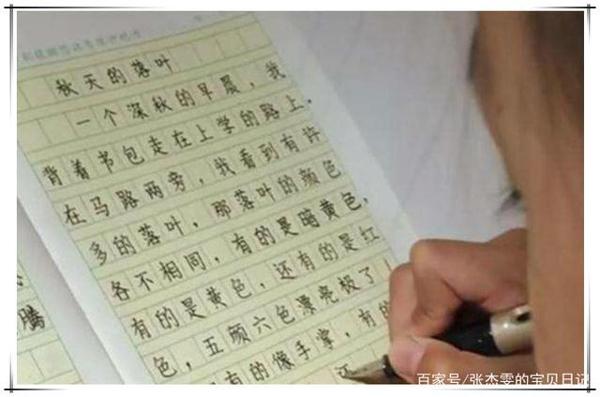 秋天的落叶
一个深秋的早晨，我
背着书包走在上学的路上，
在马路两旁，我看到有许
多的落叶，那落叶的颜色
各不相同，有的是暗黄色，
有的是黄色，还有的是红
色，五颜六色漂亮极了！
有的像手掌，有的
江
腾
百家号/张杰雯的宝贝日记